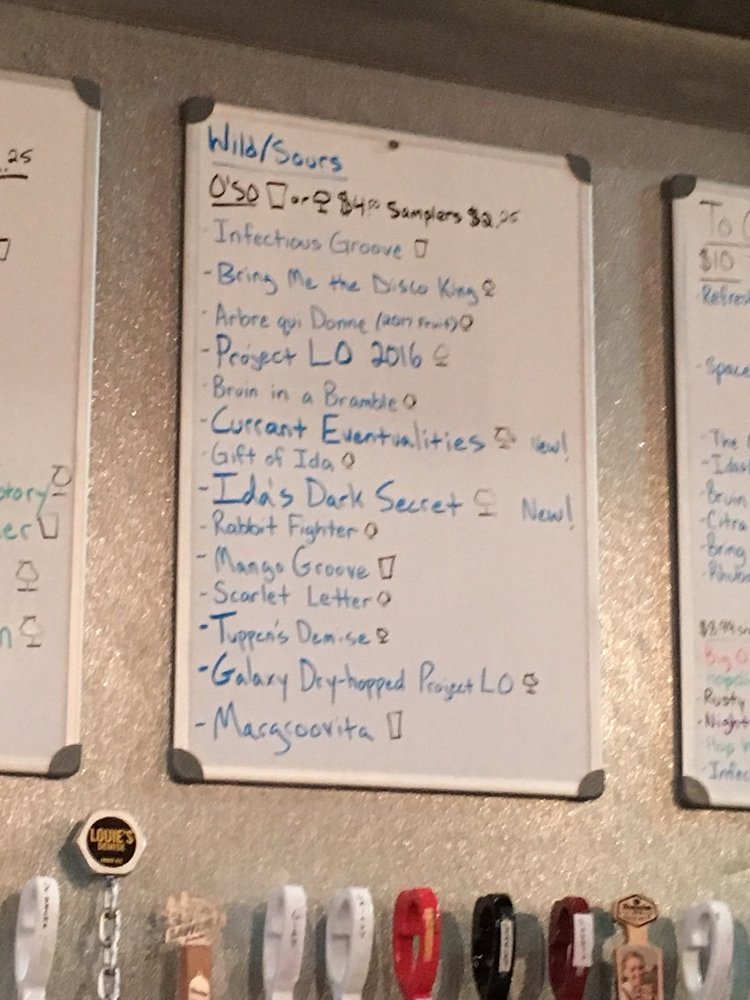 .25
Wild/Sours
O'SO or $4.00 Samplers $2.25
Infectious Groove
- Bring Me the Disco King
- Arbre qui Donne (2017 Fruit)
- Project LO 2016
- Bruin in a Bramble
- Currant Eventualities New!
- Gift of Ida
- Ida's Dark Secret New!
- Rabbit Fighter
- Mango Groove
- Scarlet Letter
- Tuppen's Demise
- Galaxy Dry-hopped Project LO
- Macgroovita
To
$10
Refres
- Space
- The
- Idas
- Bruin
- Citra
- Bring
$8.99
Big O
- Rusty
- Night
Hop
- Infec
LOUIE'S
DEMISE